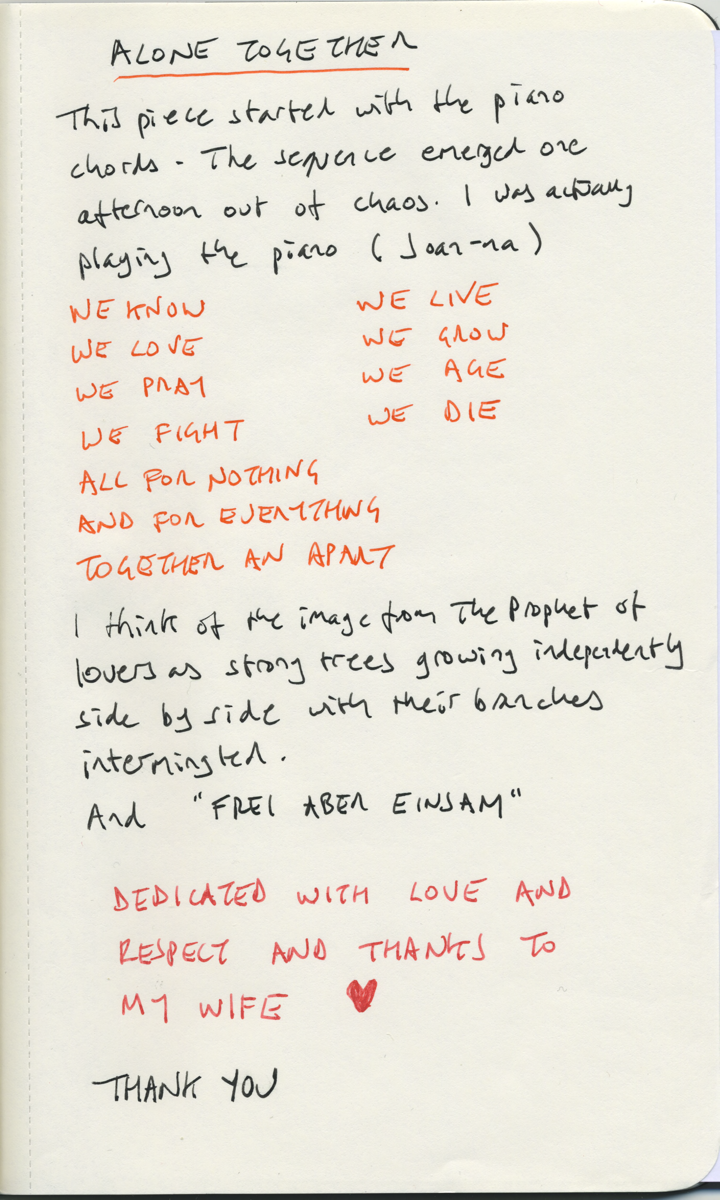 ALONE TOGETHER
This piece started with the piano
chords - The sequence emerged one
afternoon out of chaos. I was actually
playing the piano (Joan-na)
WE KNOW
WE LOVE
WE PRAY
WE FIGHT
WE LIVE
WE GROW
WE AGE
WE DIE
ALL FOR NOTHING
AND FOR EVERYTHING
TOGETHER AN APART
I think of the image from The Prophet of
lovers as strong trees growing independently
side by side with their branches
intermingled.
And "FREI ABER EINSAM"
DEDICATED WITH LOVE AND
RESPECT AND THANKS TO
MY WIFE
THANK YOU